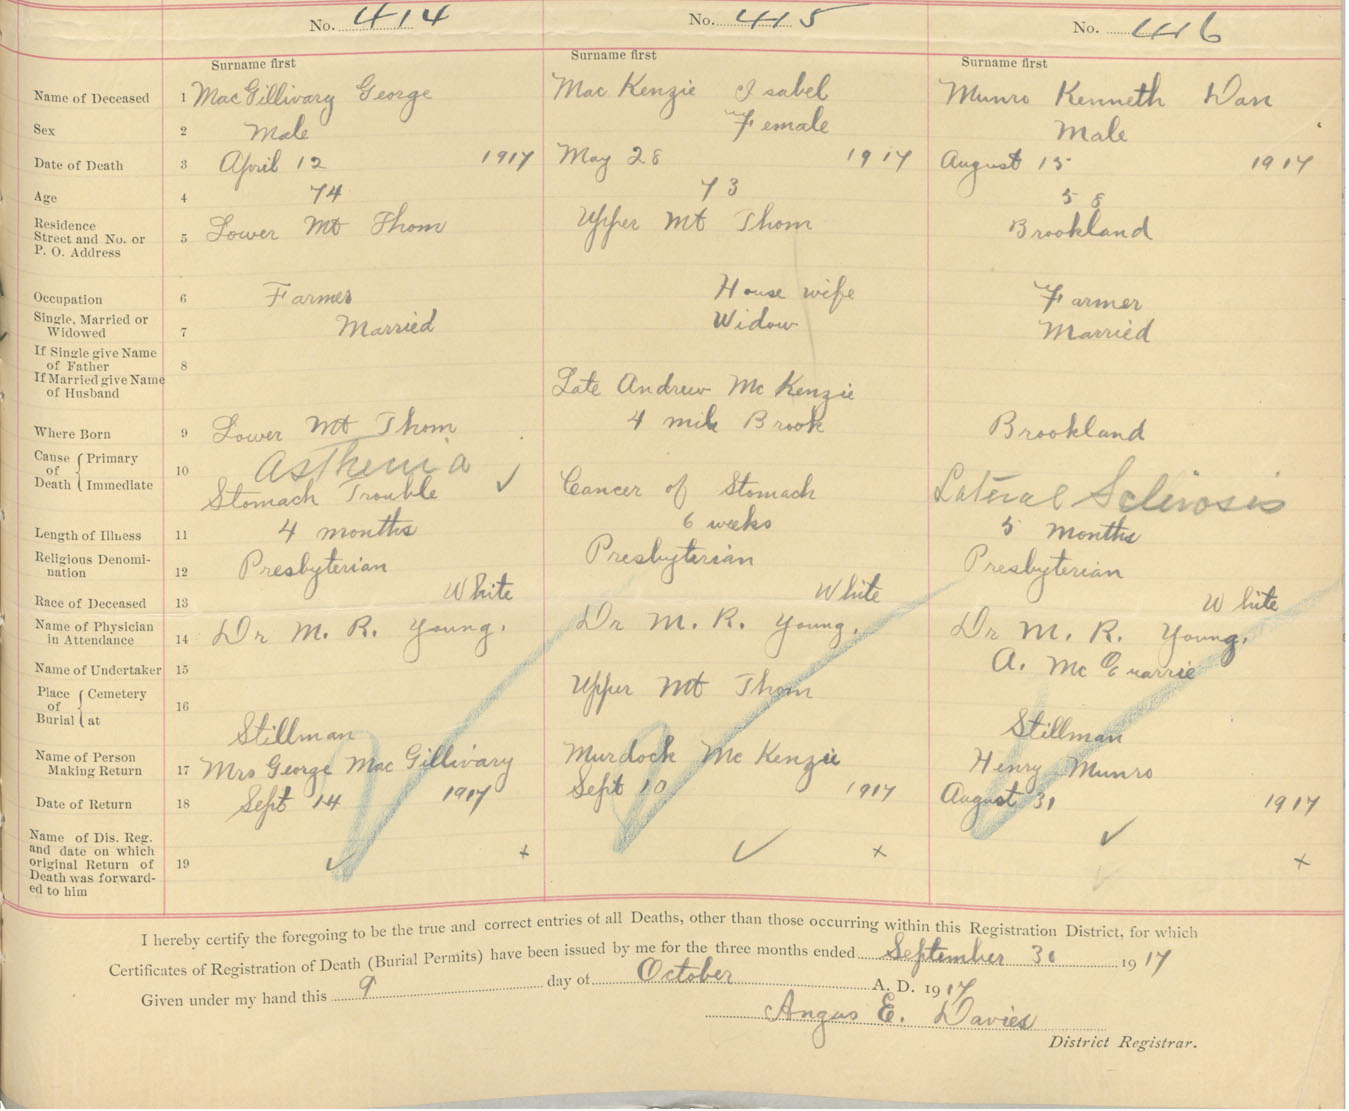 No. 414 No. 415 No. 416
Surname first Surname first Surname first
Name of Deceased 1 MacGillivary George Mac Kenzie Isabel Munro Kenneth Dan
Sex 2 Male Female Male
Date of Death 3 April 12 1917 May 28 1917 August 15 1917
Age 4 74 73 58
Residence
Street and No. or 5 Lower Mt Thom Upper Mt Thom Brookland
P. O. Address
Occupation 6 Farmer House wife Farmer
Single, Married or
Widowed 7 Married Widow Married
If Single give Name
of Father 8
If Married give Name
of Husband Late Andrew Mc Kenzie
Where Born 9 Lower Mt Thom 4 mile Brook Brookland
Cause of Death { Primary 10 Asthenia
Immediate Stomach Trouble ✓ Cancer of Stomach Lateral Sclerosis
Length of Illness 11 4 months 6 weeks 5 months
Religious Denomi-
nation 12 Presbyterian Presbyterian Presbyterian
Race of Deceased 13 White White White
Name of Physician
in Attendance 14 Dr M. R. Young. Dr M. R. Young. Dr M. R. Young.
Name of Undertaker 15 A. Mc Quarrie
Place of Burial { Cemetery 16 Upper Mt Thom
at Stillman Stillman
Name of Person
Making Return 17 Mrs George MacGillivary Murdock Mc Kenzie Henry Munro
Date of Return 18 Sept 14 1917 Sept 10 1917 August 31 1917
Name of Dis. Reg.
and date on which
original Return of 19 ✓ x ✓ x ✓ x
Death was forward-
ed to him
I hereby certify the foregoing to be the true and correct entries of all Deaths, other than those occurring within this Registration District, for which
Certificates of Registration of Death (Burial Permits) have been issued by me for the three months ended September 30 1917
Given under my hand this 9 day of October A. D. 1917
Angus E. Davies
District Registrar.